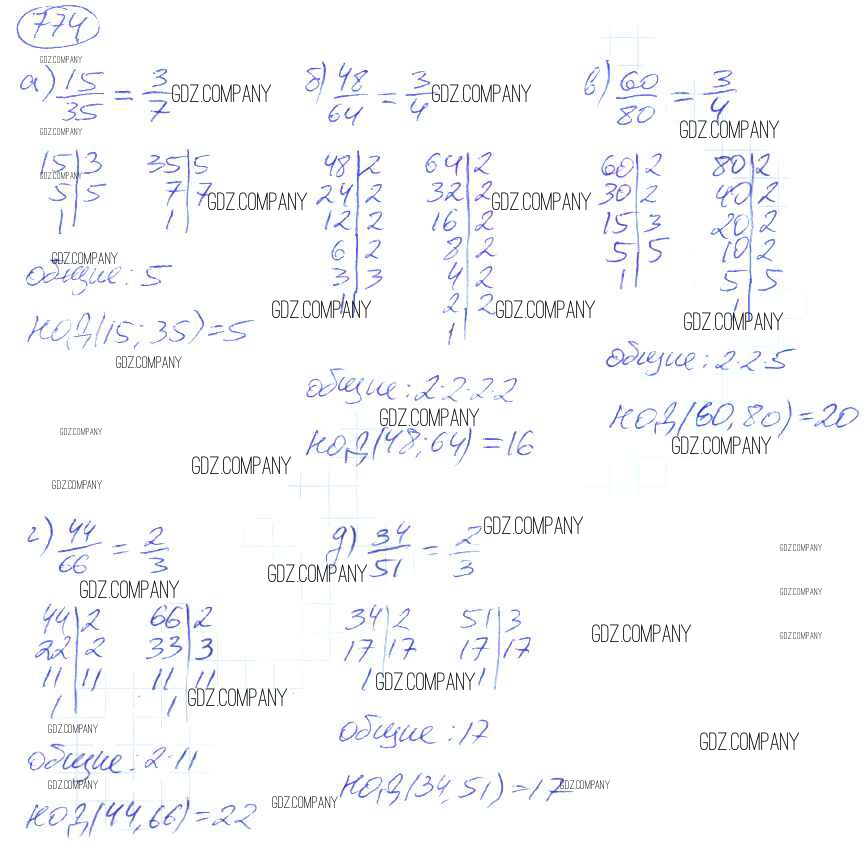 774
GDZ.COMPANY
а) 15/35 = 3/7 GDZ.COMPANY б) 48/64 = 3/4 GDZ.COMPANY в) 60/80 = 3/4
GDZ.COMPANY GDZ.COMPANY
15|3 35|5 48|2 64|2 60|2 80|2
GDZ.COMPANY
5|5 7|7 GDZ.COMPANY 24|2 32|2 GDZ.COMPANY 30|2 40|2
1| 1| 12|2 16|2 15|3 20|2
GDZ.COMPANY 6|2 8|2 5|5 10|2
общие: 5 3|3 4|2 1| 5|5
GDZ.COMPANY 1| 2|2 GDZ.COMPANY 1|
GDZ.COMPANY
НОД(15; 35) = 5 1|
GDZ.COMPANY общие: 2·2·5
общие: 2·2·2·2
GDZ.COMPANY НОД(60, 80) = 20
GDZ.COMPANY НОД(48; 64) = 16 GDZ.COMPANY
GDZ.COMPANY
GDZ.COMPANY
г) 44/66 = 2/3 д) 34/51 = 2/3 GDZ.COMPANY
GDZ.COMPANY
GDZ.COMPANY GDZ.COMPANY
GDZ.COMPANY
44|2 66|2 34|2 51|3
GDZ.COMPANY GDZ.COMPANY
22|2 33|3 17|17 17|17
11|11 11|11 1| GDZ.COMPANY 1|
1| 1| GDZ.COMPANY
GDZ.COMPANY общие: 17 GDZ.COMPANY
общие: 2·11
GDZ.COMPANY НОД(34, 51) = 17 GDZ.COMPANY
НОД(44, 66) = 22 GDZ.COMPANY